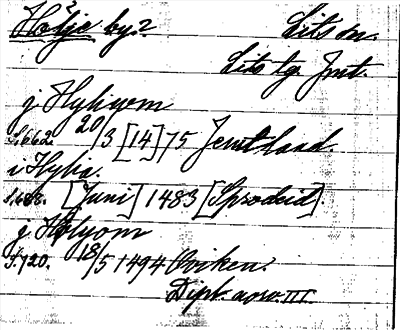 Hölje by? Lits sn.
Lits tg. Jmt.
j Hyliom
S. 662. 20/3 [14]75 Jemtland
i Hylia.
S. 688. [Juni] 1483 [Sprodeid].
j Holyom
S. 720. 18/5 1494 Oviken.
Dipl. norv. III.